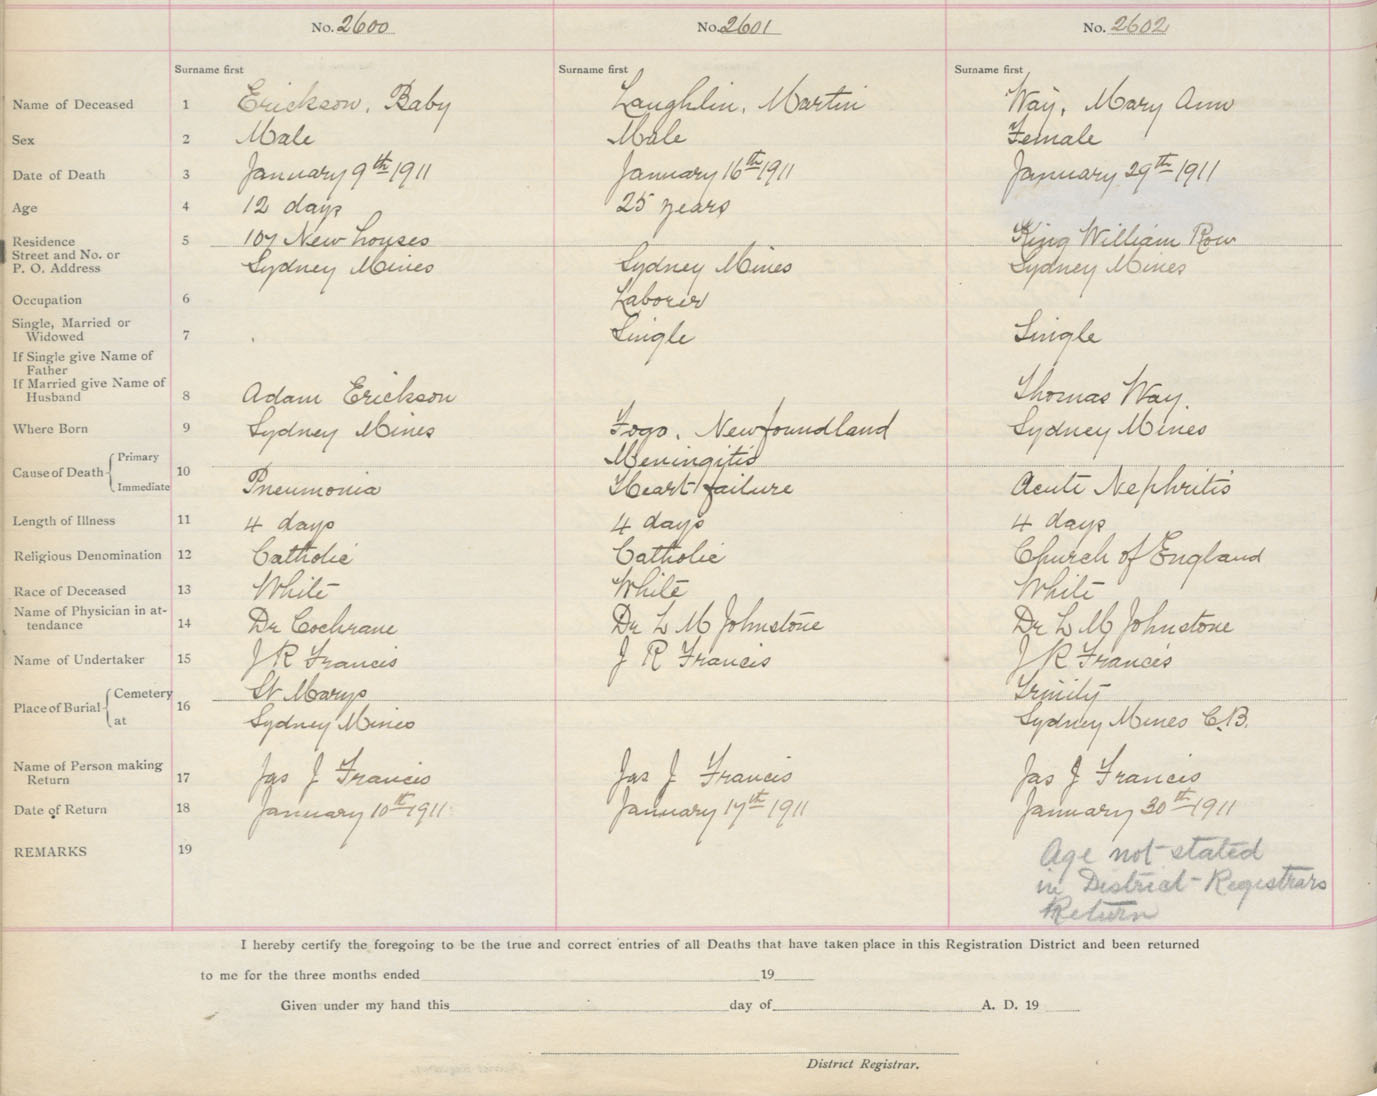 No. 2600 No. 2601 No. 2602
Surname first Surname first Surname first
Name of Deceased 1 Erickson, Baby Laughlin, Martin Way, Mary Ann
Sex 2 Male Male Female
Date of Death 3 January 9th 1911 January 16th 1911 January 29th 1911
Age 4 12 days 25 years
Residence 5 107 New houses King William Row
Street and No. or
P. O. Address Sydney Mines Sydney Mines Sydney Mines
Occupation 6 Laborer
Single, Married or
Widowed 7 Single Single
If Single give Name of
Father
If Married give Name of
Husband 8 Adam Erickson Thomas Way
Where Born 9 Sydney Mines Fogo, Newfoundland Sydney Mines
Cause of Death Primary 10 Meningitis
Immediate Pneumonia Heart failure Acute Nephritis
Length of Illness 11 4 days 4 days 4 days
Religious Denomination 12 Catholic Catholic Church of England
Race of Deceased 13 White White White
Name of Physician in at-
tendance 14 Dr Cochrane Dr L M Johnstone Dr L M Johnstone
Name of Undertaker 15 J R Francis J R Francis J R Francis
Place of Burial Cemetery 16 St Marys Trinity
at Sydney Mines Sydney Mines C.B.
Name of Person making
Return 17 Jas J Francis Jas J Francis Jas J Francis
Date of Return 18 January 10th 1911 January 17th 1911 January 30th 1911
REMARKS 19 Age not stated
in District Registrars
Return
I hereby certify the foregoing to be the true and correct entries of all Deaths that have taken place in this Registration District and been returned
to me for the three months ended 19
Given under my hand this day of A. D. 19
District Registrar.